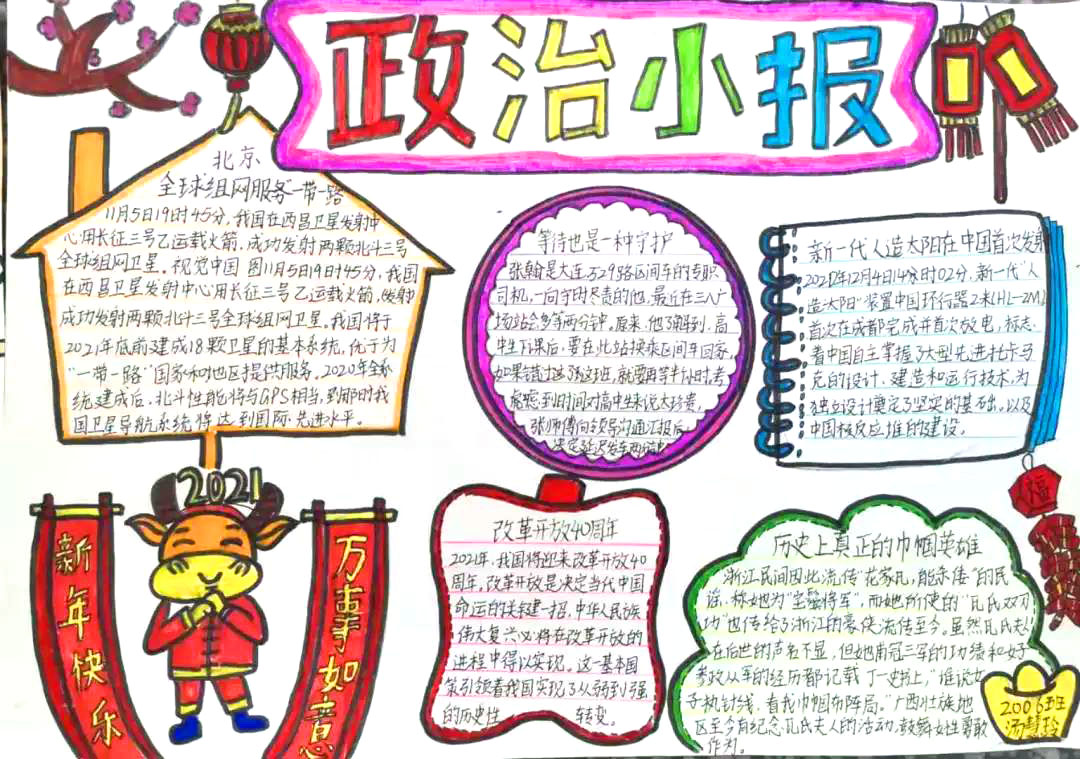 政治小报
北京
全球组网服务"一带一路
11月5日19时45分,我国在西昌卫星发射中
心用长征三号乙运载火箭,成功发射两颗北斗三号
全球组网卫星。视觉中国 图11月5日19时45分,我国
在西昌卫星发射中心用长征三号乙运载火箭,发射
成功发射两颗北斗三号全球组网卫星。我国将于
2021年底前建成18颗卫星的基本系统,优于为
"一带一路"国家和地区提供服务。2020年全系
统建成后,北斗性能将与GPS相当,到那时我
国卫星导航系统将达到国际先进水平。
等待也是一种守护
张翰是大连329路区间车的专职
司机,一向守时尽责的他,最近在三八广
场站会多等两分钟。原来,他了解到,高
中生下课后,要在此站换乘区间车回家,
如果错过这班,就要再等半小时,考
虑到时间对高中生来说太珍贵,
张师傅向领导沟通汇报后,
决定延迟发车两分钟
新一代人造太阳在中国首次发射
2021年12月4日14分时02分,新一代"人
造太阳"装置中国环行器2米(HL-2M)
首次在成都完成并首次放电,标志
着中国自主掌握了大型先进托卡马
克的设计、建造和运行技术,为
独立设计奠定了坚实的基础。以及
中国核反应堆的建设。
2021
新年快乐
万事如意
改革开放40周年
2021年,我国将迎来改革开放40
周年,改革开放是决定当代中国
命运的关键一招,中华人民族
伟大复兴必将在改革开放的
进程中得以实现。这一基本国
策引领着我国实现了从弱到强
的历史性 转变。
福
历史上真正的巾帼英雄
浙江民间因此流传"花家瓦,能杀倭"的民
谣,称她为"宝髻将军",而她所使的"瓦氏双刀
功"也传给了浙江的豪侠流传至今。虽然瓦氏夫人
在后世的声名不显,但她勇冠三军的功绩和女子
参政从军的经历都记载了史书上,"谁说女
子执针线,看我巾帼布阵局。"广西壮族地
区至今有纪念瓦氏夫人的活动,鼓舞女性勇敢
作为。
2006班
汤慧玲